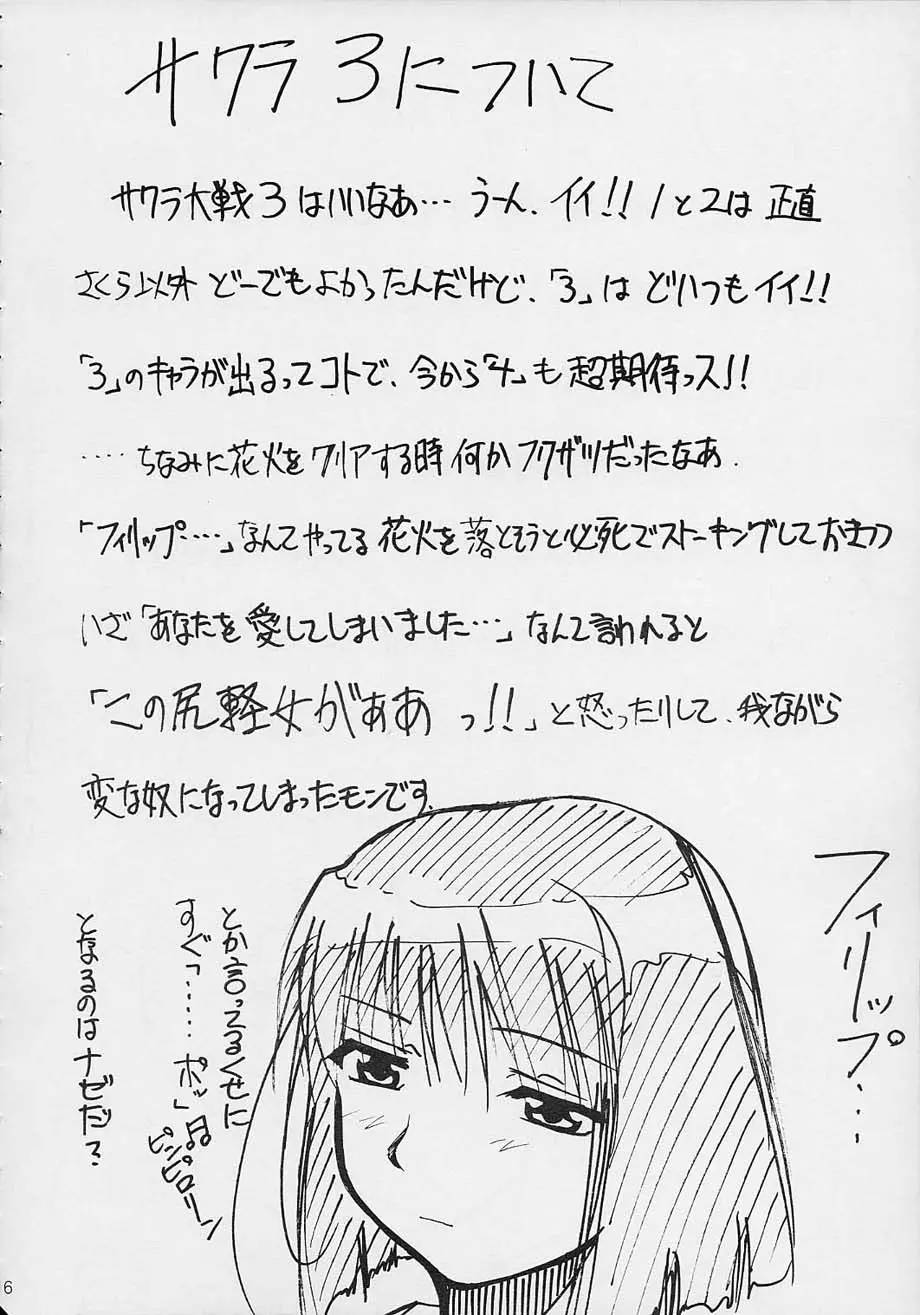 サクラ3について
サクラ大戦3はいいなあ…うーん、イイ!!1と2は正直
さくら以外どーでもよかったんだけど、「3」はどいつもイイ!!
「3」のキャラが出るってコトで、今から「4」も超期待っス!!
‥‥ちなみに花火をクリアする時何かフクザツだったなあ.
「フィリップ‥‥」なんてやってる花火を落とそうと必死でストーキングしておきつつ
いざ「あなたを愛してしまいました…」なんて言われると
「この尻軽女がぁああっ!!」と怒ったりして、我ながら
変な奴になってしまったモンです.
フィリップ‥‥
とか言ってるくせに
すぐ「‥‥‥ポッ」♫
ピンピロリン
となるのはナゼだ?
6